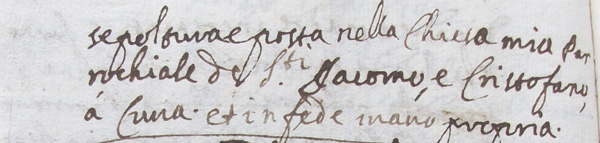 sepoltura e posta nella Chiesa mia Par
rochiale de S.ti Jacomo, e Cristofano,
á Cuna. et in fede mano propria.